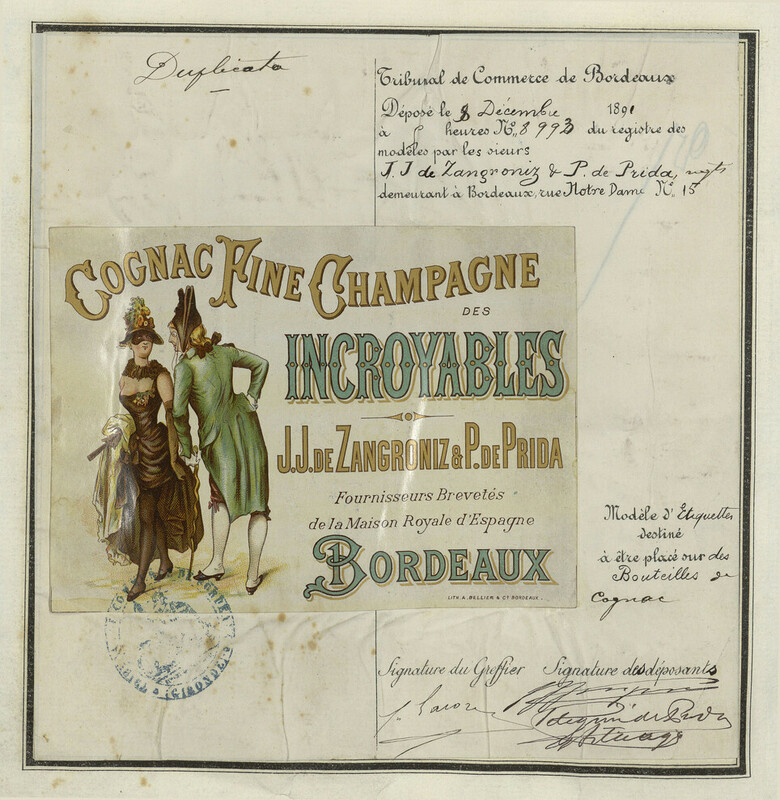 Duplicata
Tribunal de Commerce de Bordeaux
Déposé le 8 Décembre 1891
à heures Nº 8993 du registre des
modèles par les sieurs
J. J de Zangroniz & P. de Prida, negts
demeurant à Bordeaux, rue Notre Dame Nº 15
COGNAC FINE CHAMPAGNE
DES
INCROYABLES
J.J. DE ZANGRONIZ & P. DE PRIDA
Fournisseurs Brevetés
de la Maison Royale d'Espagne
BORDEAUX
LITH. A. BELLIER & Cº BORDEAUX.
Modèle d'Etiquettes
destiné
à être placé sur des
Bouteilles de
Cognac
Signature du Greffier Signature des déposants